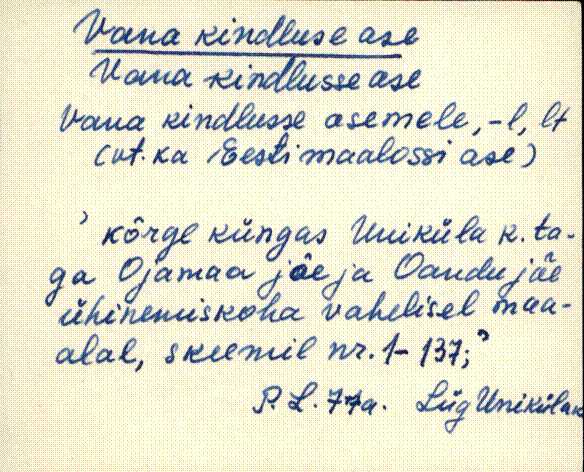 Vana kindluse ase
Vana kindlusse ase
Vana kindlusse asemele, -l, lt
(vt. ka Eestimaalossi ase)
' kõrge küngas Uniküla k. ta-
ga Ojamaa jõe ja Oandu jõe
ühinemiskoha vahelisel maa-
alal, skeemil nr. 1-137;'
P. L. 77a. Lüg Uniküla k